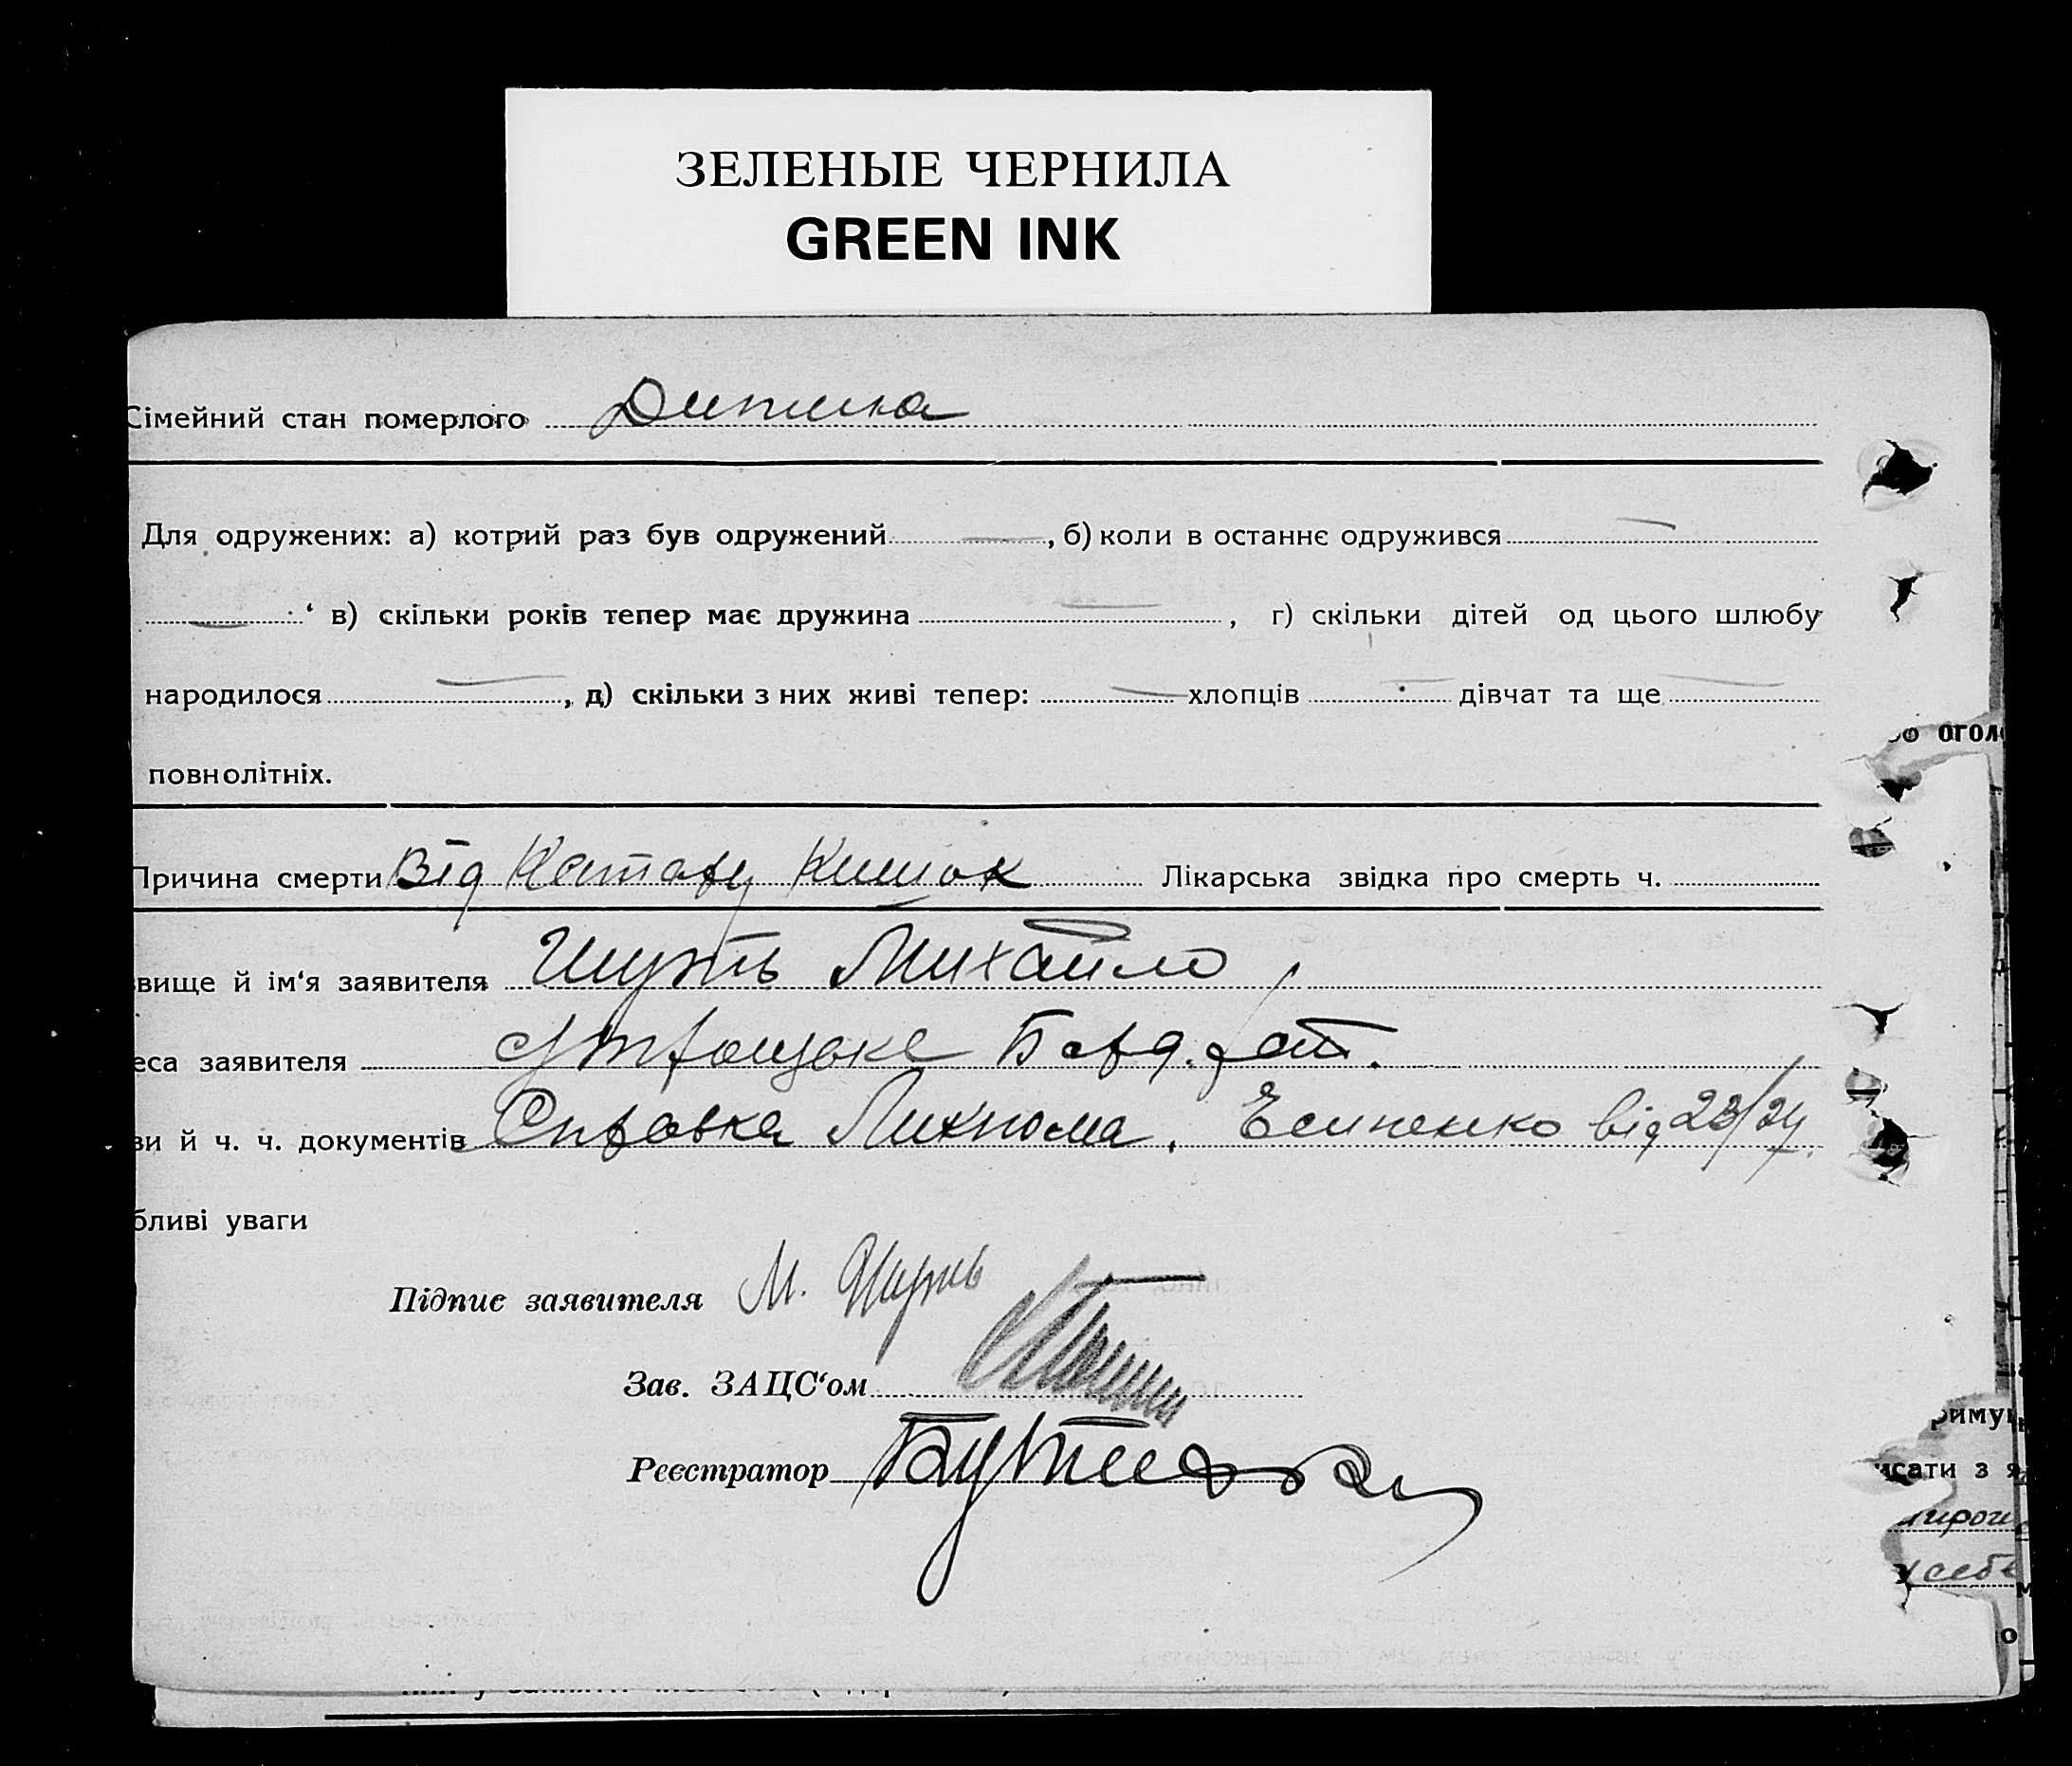 ЗЕЛЕНЫЕ ЧЕРНИЛА
GREEN INK
Сімейний стан померлого Дитина
Для одружених: а) котрий раз був одружений , б) коли в останнє одружився
в) скільки років тепер має дружина , г) скільки дітей од цього шлюбу
народилося , д) скільки з них живі тепер: хлопців дівчат та ще
повнолітніх.
Причина смерти Від Катару Кишок Лікарська звідка про смерть ч.
вище й ім'я заявителя Михайло
еса заявителя
ви й ч. ч. документів Справка Лікпома. Есипенко від
бливі уваги
Підпис заявителя М.
Зав. ЗАЦС'ом
Реєстратор
о огол
риму
исати з я